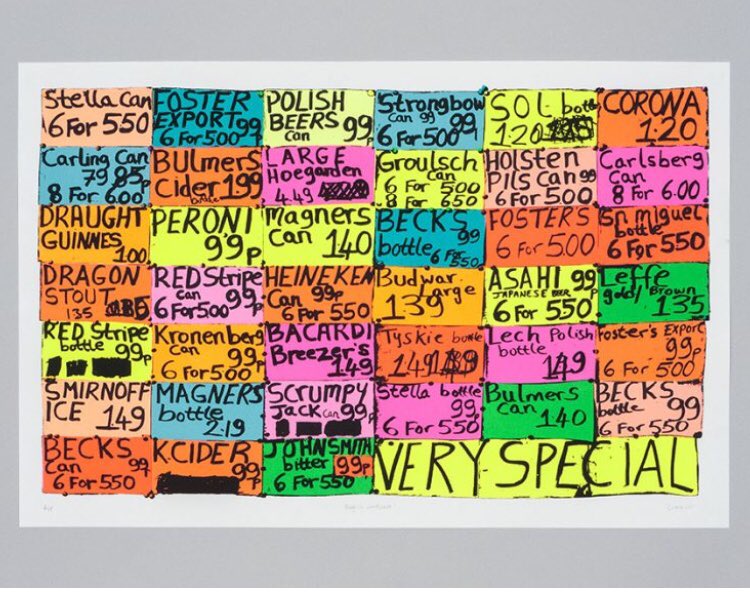 Stella Can
6 For 550
FOSTER
EXPORT 99
6 For 500
POLISH
BEERS
can 99
Strongbow
Can 99 99
6 For 500
SOL bottle
1:20
CORONA
1:20
Carling Can
79 85p
8 For 600
BULMERS
Cider 199
bottle
LARGE
Hoegarden
4.49
Groulsch
can
6 For 500
8 For 650
HOLSTEN
PILS Can 99
6 For 500
Carlsberg
Can
8 For 6.00
DRAUGHT
GUINNES
1.00
PERONI
99p
Magners
Can 140
BECK'S
bottle 99
6 For 550
FOSTERS
6 For 5.00
Sn miguel
bottle
6 For 550
DRAGON
STOUT
135
RED Stripe
can 99p
6 For 5.00
HEINEKEN
Can 99p
6 For 550
Budwar
large
139
ASAHI 99
JAPANESE BEER P
6 For 550
Leffe
gold/Brown
135
RED Stripe
bottle 99p
Kronenberg
Can 99p
6 For 500
BACARDI
Breezer's
149
Tyskie bottle
149
Lech Polish
bottle
149
Foster's Export
99p
6 For 500
SMIRNOFF
ICE 149
MAGNERS
bottle
2.19
Scrumpy
Jack can 99p
Stella bottle
99p
6 For 550
Bulmers
Can 140
BECKS
bottle 99
6 For 550
BECKS
Can 99
6 For 550
K.CIDER
99p
JOHN SMITH
bitter 99p
6 For 550
VERY SPECIAL